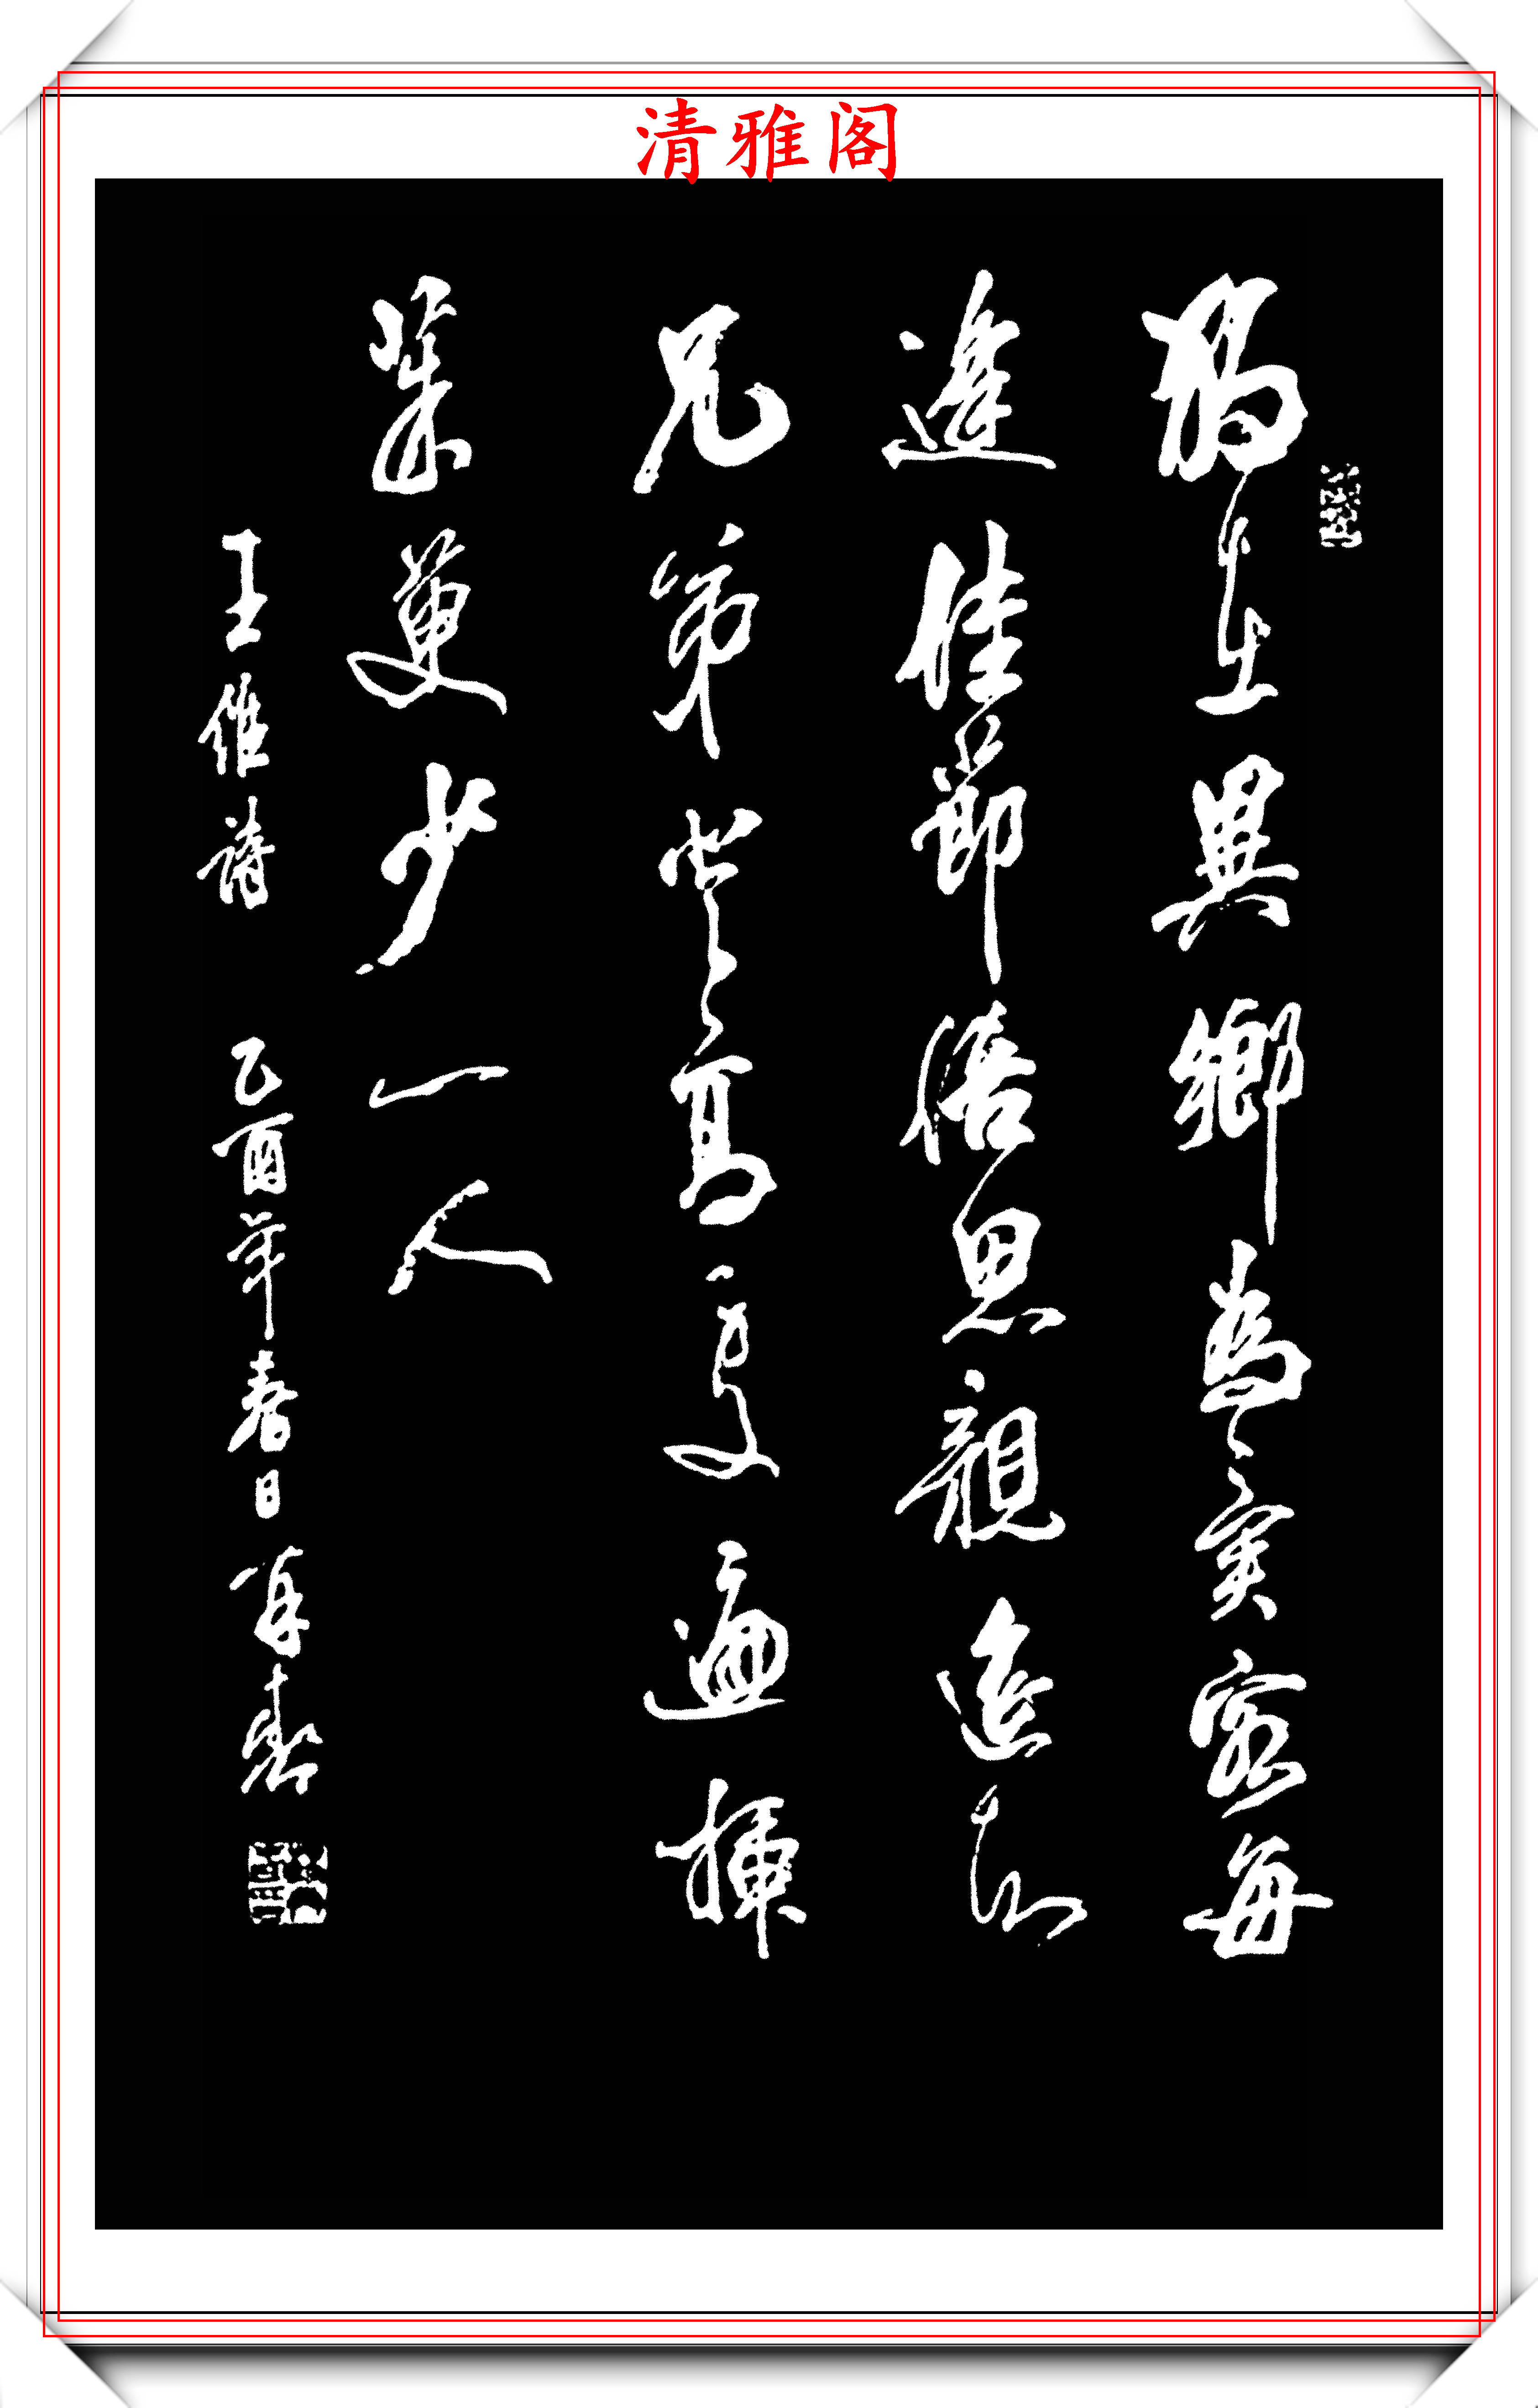 清雅阁
獨在異鄉為異客每
逢佳節倍思親遥知
兄弟登高處遍插
茱萸少一人
王維詩 乙酉年春日